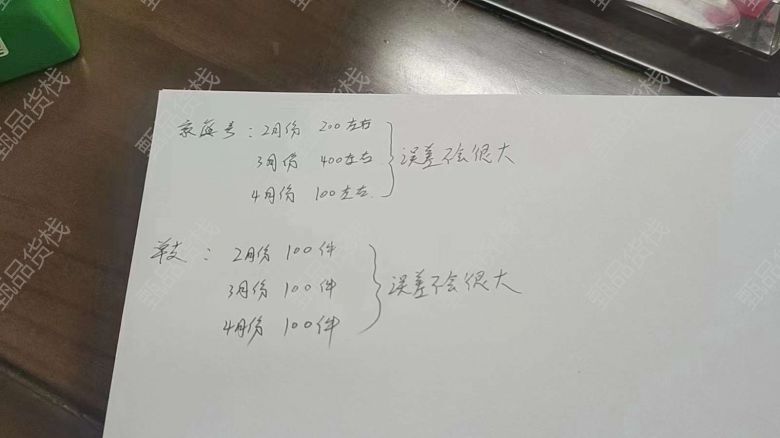 京笛号：2月份 200左右
3月份 400左右
4月份 100左右
误差不会很大
单支：2月份 100件
3月份 100件
4月份 100件
误差不会很大
甄品货栈